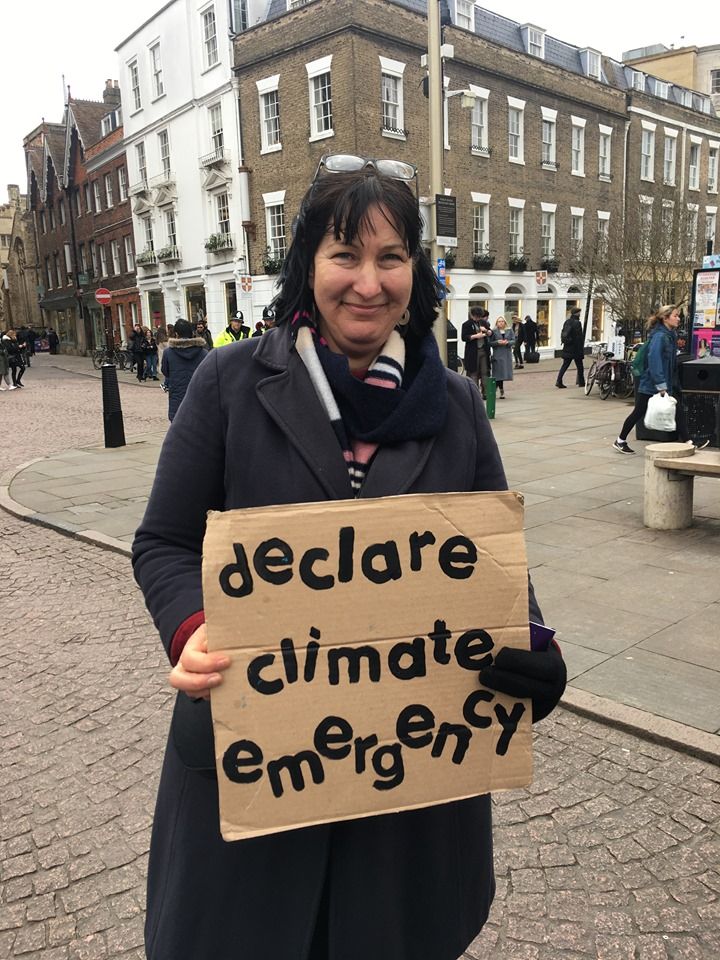 declare
climate
emergency